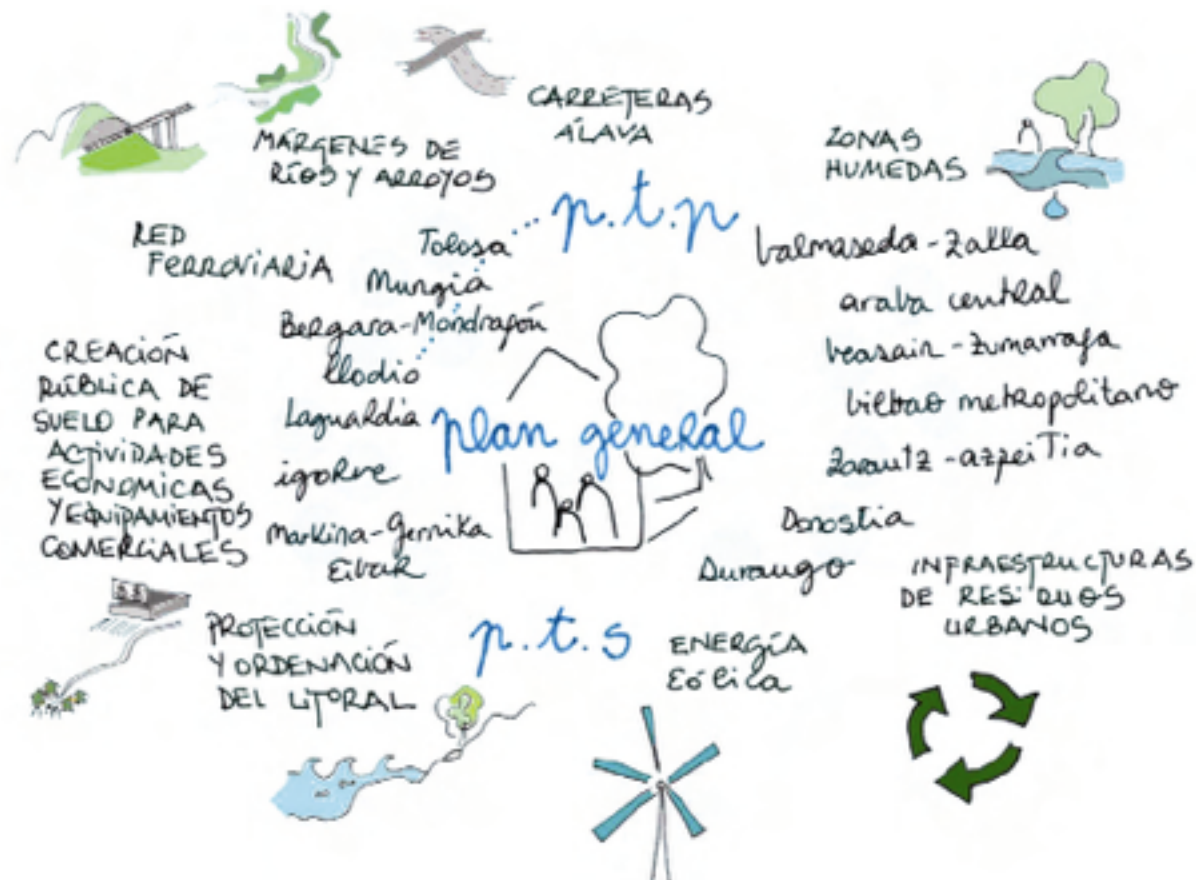 CARRETERAS
ÁLAVA
MÁRGENES DE
RÍOS Y ARROYOS
ZONAS
HUMEDAS
p.t.p
RED
FERROVIARIA
Tolosa
Murgia
Bergara-Mondragón
llodio
Laguardia
igorre
Markina-Gernika
Eibar
balmaseda-Zalla
araba central
beasain-Zumarraga
bilbao metropolitano
Zarautz-azpeiTia
Donostia
Durango
CREACIÓN
PÚBLICA DE
SUELO PARA
ACTIVIDADES
ECONOMICAS
Y EQUIPAMIENTOS
COMERCIALES
plan general
p.t.s
PROTECCIÓN
Y ORDENACIÓN
DEL LITORAL
ENERGÍA
EóLica
INFRAESTRUCTURAS
DE RESIDUOS
URBANOS